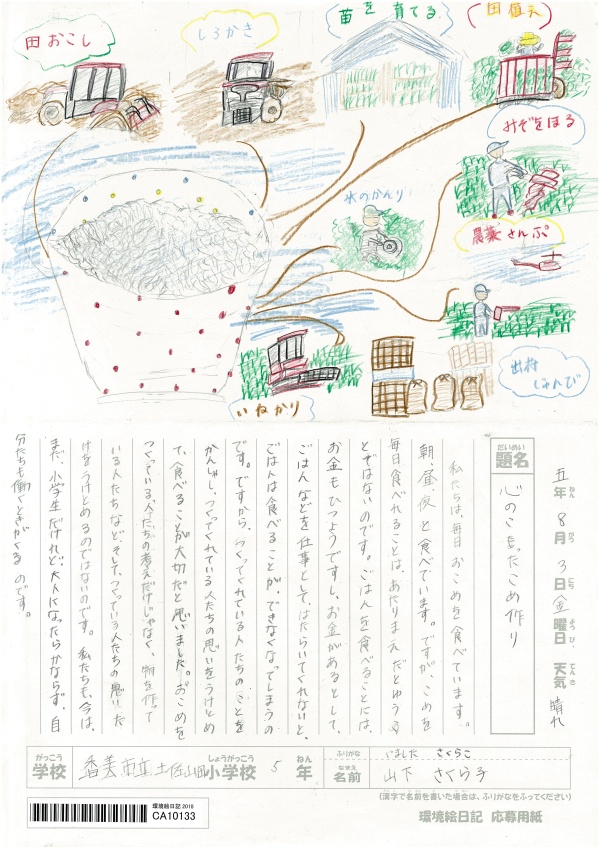 田おこし
しろかき
苗を育てる
田植え
みぞをほる
水のかんり
農薬さんぷ
いねかり
出荷じゅんび
五年 8月 3日 金曜日 天気 晴れ
ねん がつ にち ようび てんき
だいめい
題名
心のこもったこめ作り
私たちは、毎日おこめを食べています。
朝、昼、夜と食べています。ですが、こめを
毎日食べれることは、あたりまえだとゆうこ
とではないのです。ごはんを食べることには、
お金もひつようですし、お金があるとして、
ごはんなどを仕事として、はたらいてくれないと、
ごはんは食べることが、できなくなってしまうの
です。ですから、つくってくれている人たちのことを
かんしゃし、つくってくれている人たちの思いをうけとめ
て、食べることが大切だと思いました。おこめを
つくっている人たちの考えだけじゃなく、物を作って
いる人たちなど、そして、つくっている人たちの思いだ
けをうけとめるのではないのです。私たちも、今は、
まだ、小学生だけれど、大人になったらかならず、自
分たちも働くときがくるのです。
がっこう
学校
香美市立土佐山田
しょうがっこう
小学校
5
ねん
年
ふりがな
なまえ
名前
やました さくらこ
山下 さくら子
(漢字で名前を書いた場合は、ふりがなをふってください)
環境絵日記 2018
CA10133
環境絵日記 応募用紙